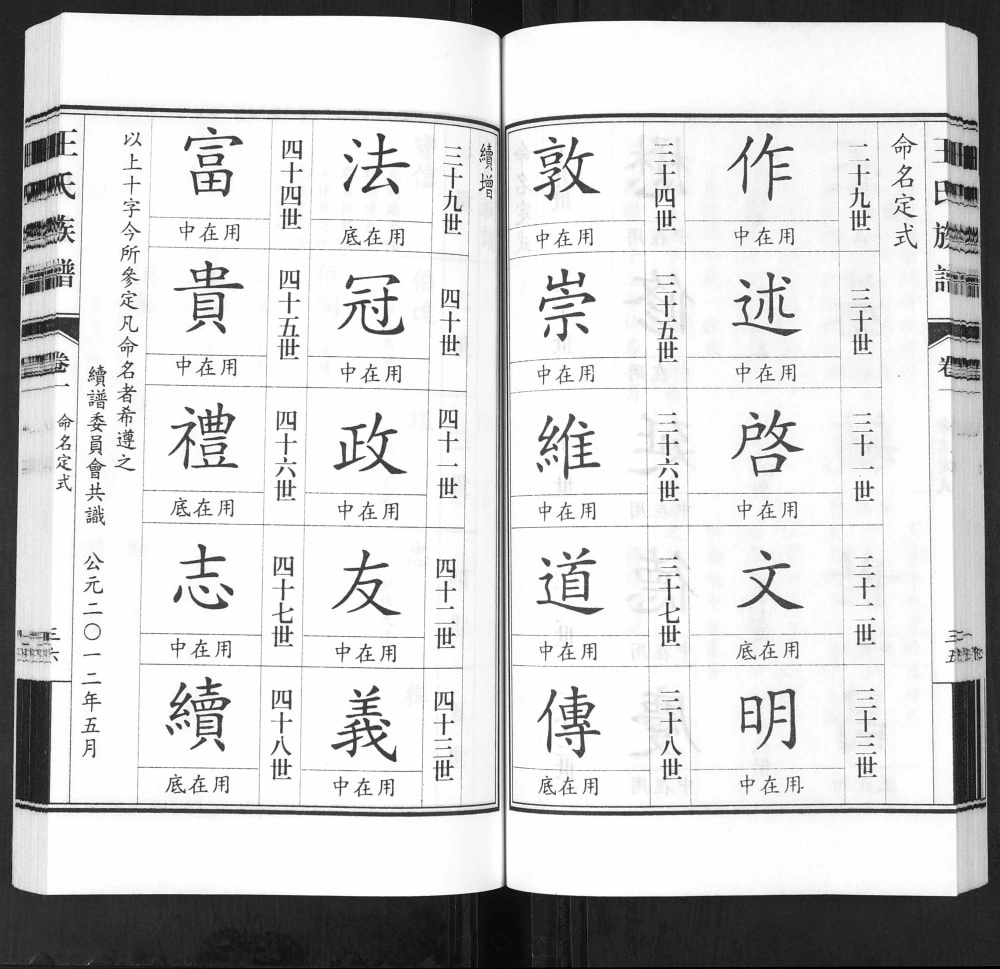 王氏族譜
卷一
三五
命名定式
二十九世
作
用在中
三十世
述
用在中
三十一世
啓
用在中
三十二世
文
用在底
三十三世
明
用在中
三十四世
敦
用在中
三十五世
崇
用在中
三十六世
維
用在中
三十七世
道
用在中
三十八世
傳
用在底
續增
三十九世
法
用在底
四十世
冠
用在中
四十一世
政
用在中
四十二世
友
用在中
四十三世
義
用在中
四十四世
富
用在中
四十五世
貴
用在中
四十六世
禮
用在底
四十七世
志
用在中
四十八世
續
用在底
以上十字今所參定凡命名者希遵之
續譜委員會共識 公元二〇一二年五月
王氏族譜
卷一
命名定式
三六